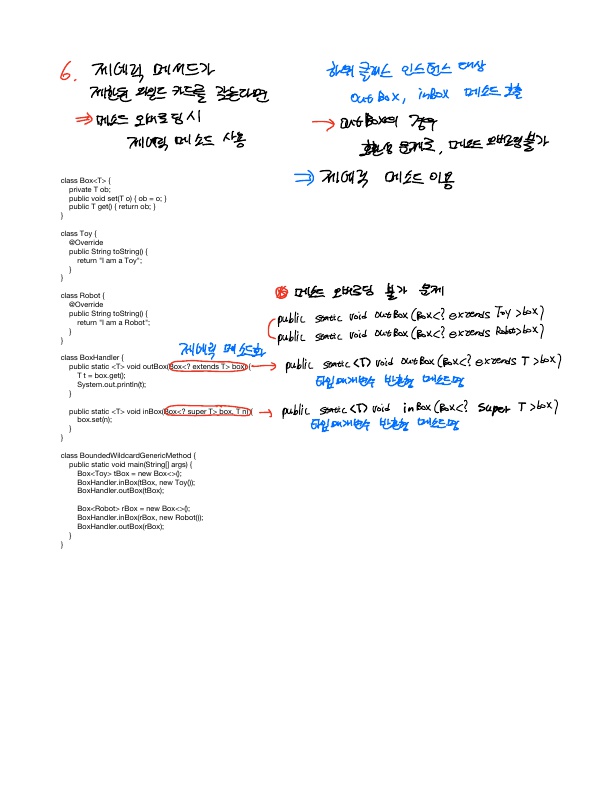 6. 제네릭 메서드가
제한된 와일드 카드를 갖는다면
⇒ 메소드 오버로딩 시
제네릭 메소드 사용
하위 클래스 인스턴스 대상
outBox, inBox 메소드 호출
→ outBox의 경우
호환성 문제로, 메소드 오버로딩 불가
⇒ 제네릭 메소드 이용
class Box<T> {
private T ob;
public void set(T o) { ob = o; }
public T get() { return ob; }
}
class Toy {
@Override
public String toString() {
return "I am a Toy";
}
}
class Robot {
@Override
public String toString() {
return "I am a Robot";
}
}
⊛ 메소드 오버로딩 불가 문제
public static void outBox(Box<? extends Toy> box)
public static void outBox(Box<? extends Robot> box)
제네릭 메소드화
class BoxHandler {
public static <T> void outBox(Box<? extends T> box) {
T t = box.get();
System.out.println(t);
}
→ public static <T> void outBox(Box<? extends T> box)
타입매개변수 반환형 메소드명
public static <T> void inBox(Box<? super T> box, T n) {
box.set(n);
}
}
→ public static <T> void inBox(Box<? super T> box)
타입매개변수 반환형 메소드명
class BoundedWildcardGenericMethod {
public static void main(String[] args) {
Box<Toy> tBox = new Box<>();
BoxHandler.inBox(tBox, new Toy());
BoxHandler.outBox(tBox);
Box<Robot> rBox = new Box<>();
BoxHandler.inBox(rBox, new Robot());
BoxHandler.outBox(rBox);
}
}